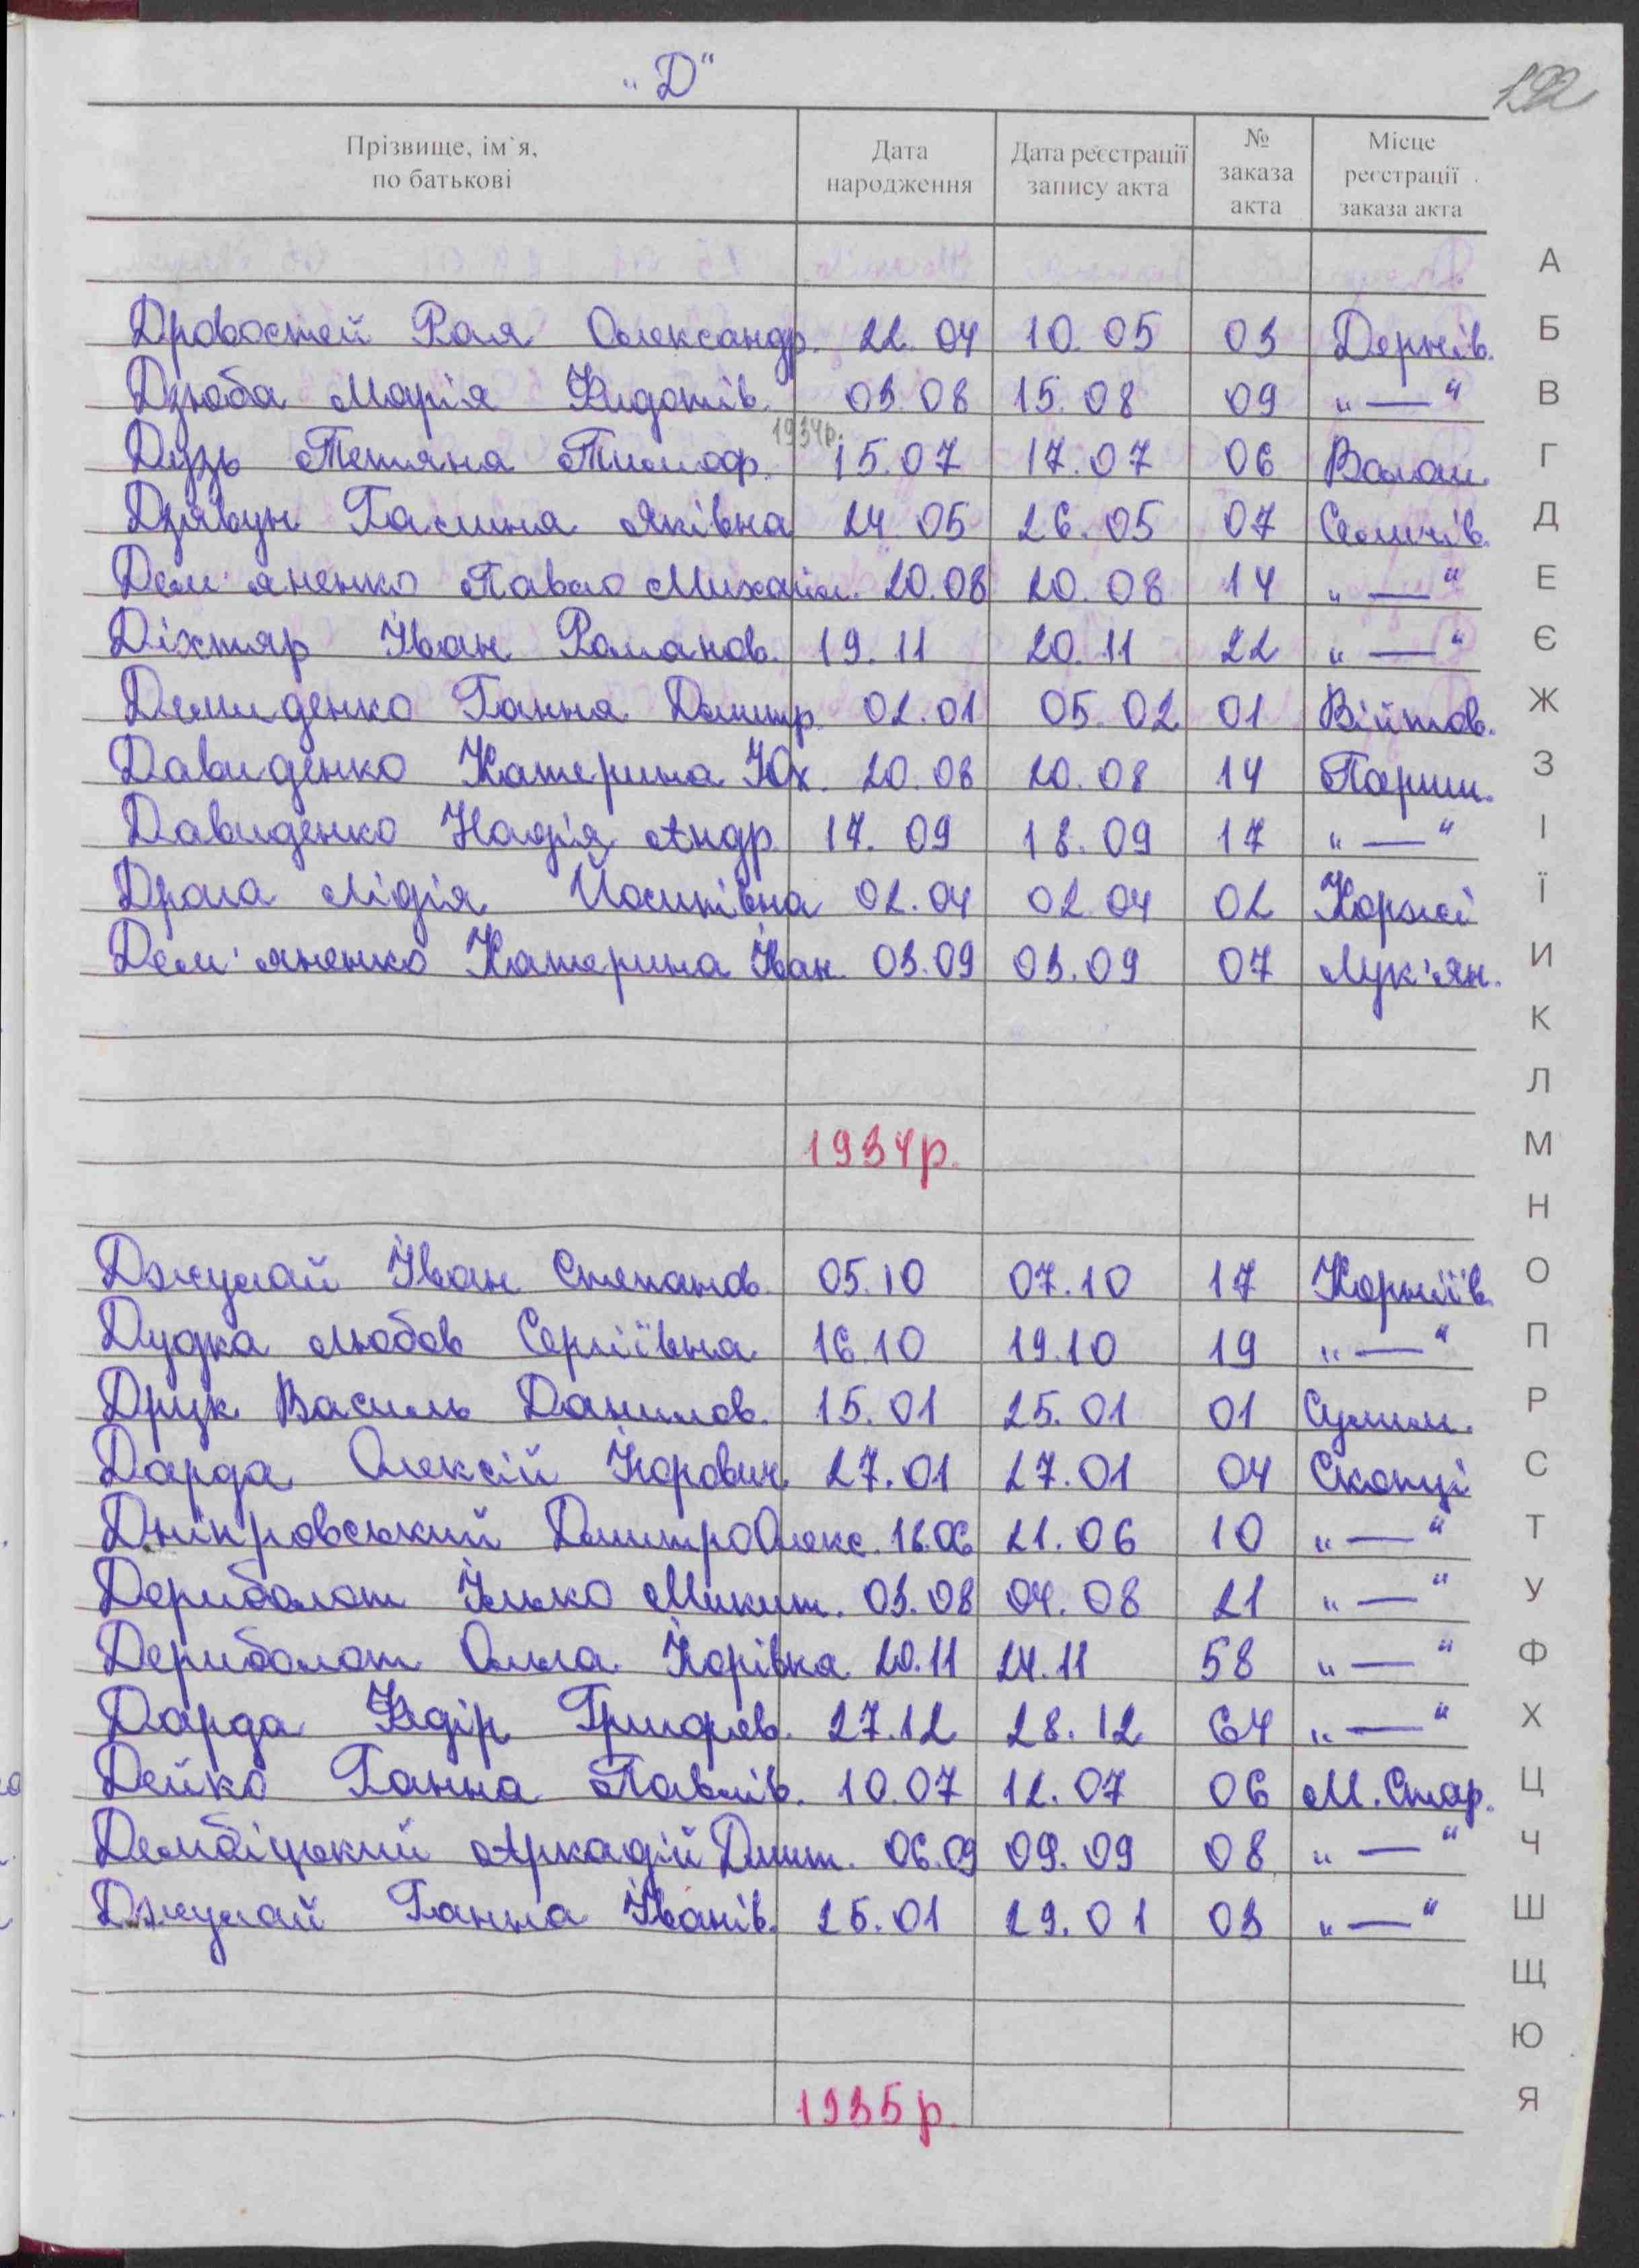 „Д“
192
Прізвище, ім`я, по батькові | Дата народження | Дата реєстрації запису акта | № заказа акта | Місце реєстрації заказа акта
Дровостей Рая Олександр. 22.04 10.05 03 Дернів.
Дзюба Марія Федотів. 03.08 15.08 09 „—“
1934р.
Дузь Тетяна Тимоф. 15.07 17.07 06 Волош.
Дзявун Галина Яківна 24.05 26.05 07 Селичів.
Дем'яненко Павло Михайл. 20.08 20.08 14 „—“
Діхтяр Іван Романов. 19.11 20.11 22 „—“
Демиденко Ганна Дмитр. 02.01 05.02 01 Війтов.
Давиденко Катерина Юх. 20.08 20.08 14 Париш.
Давиденко Надія Андр. 17.09 18.09 17 „—“
Драга Лідія Йосипівна 02.04 02.04 02 Коржі
Дем'яненко Катерина Іван. 03.09 03.09 07 Лук'ян.
1934р.
Джулай Іван Степанов. 05.10 07.10 17 Корніїв.
Дудка Любов Сергіївна 16.10 19.10 19 „—“
Друк Василь Данилов. 15.01 25.01 01 Сулим.
Дарда Олексій Єгорович 27.01 27.01 04 Скопці
Дніпровський Дмитро Олекс. 18.06 21.06 10 „—“
Дериболот Ілько Микит. 03.08 04.08 21 „—“
Дериболот Ольга Єгорівна 20.11 24.11 58 „—“
Дарда Федір Григоров. 27.12 28.12 64 „—“
Дейко Ганна Павлів. 10.07 12.07 06 М. Стар.
Дембіцький Аркадій Дмит. 06.09 09.09 08 „—“
Джулай Ганна Іванів. 25.01 29.01 03 „—“
1935р.
А
Б
В
Г
Д
Е
Є
Ж
З
І
Ї
И
К
Л
М
Н
О
П
Р
С
Т
У
Ф
Х
Ц
Ч
Ш
Щ
Ю
Я